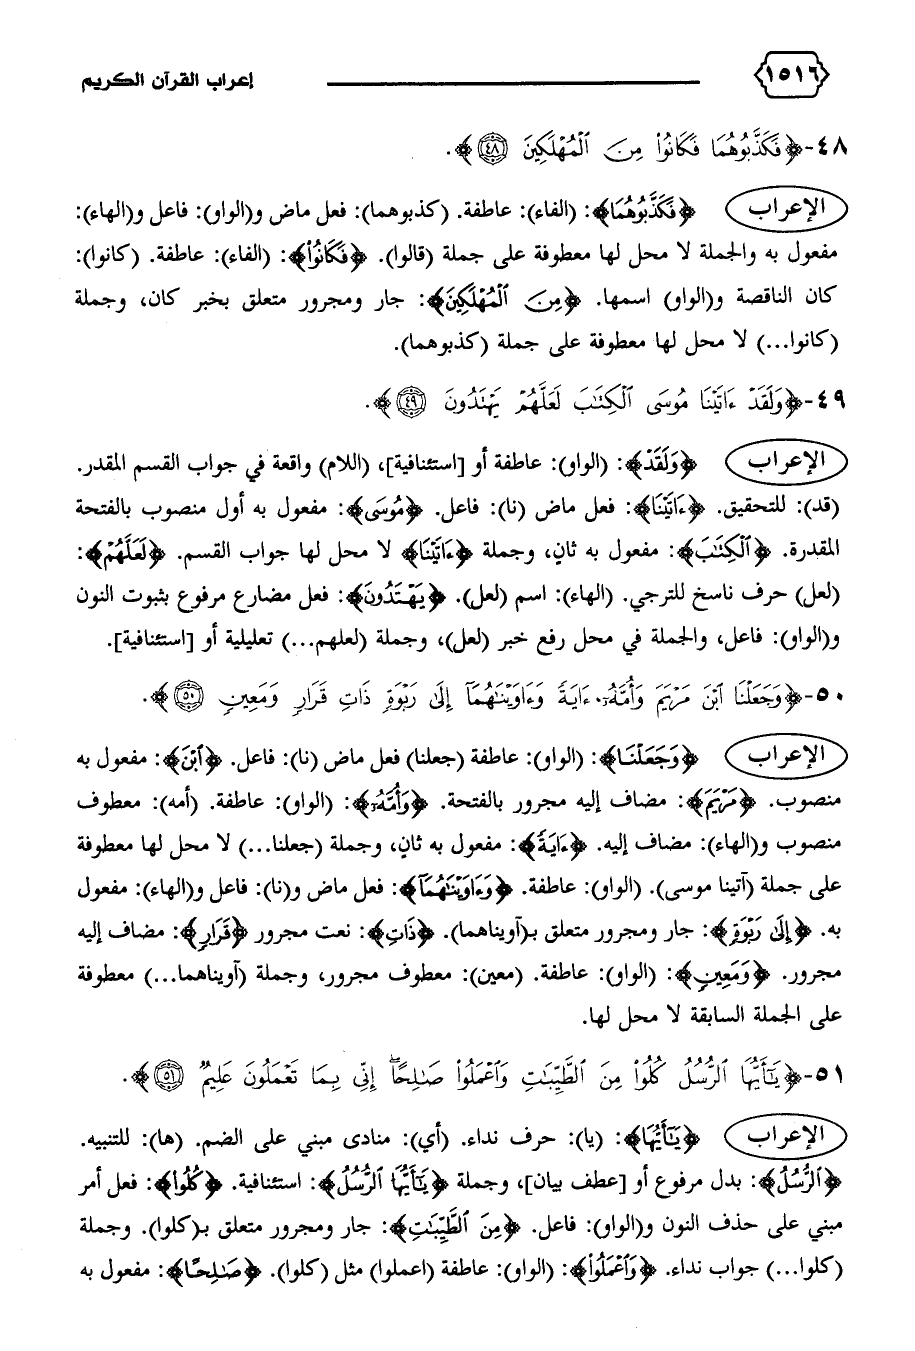 ١٥١٦ إعراب القرآن الكريم
٤٨-﴿فَكَذَّبُوهُمَا فَكَانُوا۟ مِنَ ٱلْمُهْلَكِينَ ٤٨﴾.
الإعراب ﴿فَكَذَّبُوهُمَا﴾: (الفاء): عاطفة. (كذبوهما): فعل ماض و(الواو): فاعل و(الهاء):
مفعول به والجملة لا محل لها معطوفة على جملة (قالوا). ﴿فَكَانُوا۟﴾: (الفاء): عاطفة. (كانوا):
كان الناقصة و(الواو) اسمها. ﴿مِنَ ٱلْمُهْلَكِينَ﴾: جار ومجرور متعلق بخبر كان، وجملة
(كانوا...) لا محل لها معطوفة على جملة (كذبوهما).
٤٩-﴿وَلَقَدْ ءَاتَيْنَا مُوسَى ٱلْكِتَٰبَ لَعَلَّهُمْ يَهْتَدُونَ ٤٩﴾.
الإعراب ﴿وَلَقَدْ﴾: (الواو): عاطفة أو [استئنافية]، (اللام) واقعة في جواب القسم المقدر.
(قد): للتحقيق. ﴿ءَاتَيْنَا﴾: فعل ماض (نا): فاعل. ﴿مُوسَى﴾: مفعول به أول منصوب بالفتحة
المقدرة. ﴿ٱلْكِتَٰبَ﴾: مفعول به ثانٍ، وجملة ﴿ءَاتَيْنَا﴾ لا محل لها جواب القسم. ﴿لَعَلَّهُمْ﴾:
(لعل) حرف ناسخ للترجي. (الهاء): اسم (لعل). ﴿يَهْتَدُونَ﴾: فعل مضارع مرفوع بثبوت النون
و(الواو): فاعل، والجملة في محل رفع خبر (لعل)، وجملة (لعلهم...) تعليلية أو [استئنافية].
٥٠-﴿وَجَعَلْنَا ٱبْنَ مَرْيَمَ وَأُمَّهُۥٓ ءَايَةً وَءَاوَيْنَٰهُمَآ إِلَىٰ رَبْوَةٍ ذَاتِ قَرَارٍ وَمَعِينٍ ٥٠﴾.
الإعراب ﴿وَجَعَلْنَا﴾: (الواو): عاطفة (جعلنا) فعل ماض (نا): فاعل. ﴿ٱبْنَ﴾: مفعول به
منصوب. ﴿مَرْيَمَ﴾: مضاف إليه مجرور بالفتحة. ﴿وَأُمَّهُۥٓ﴾: (الواو): عاطفة. (أمه): معطوف
منصوب و(الهاء): مضاف إليه. ﴿ءَايَةً﴾: مفعول به ثانٍ، وجملة (جعلنا...) لا محل لها معطوفة
على جملة (آتينا موسى). (الواو): عاطفة. ﴿وَءَاوَيْنَٰهُمَآ﴾: فعل ماض و(نا): فاعل و(الهاء): مفعول
به. ﴿إِلَىٰ رَبْوَةٍ﴾: جار ومجرور متعلق بـ(آويناهما). ﴿ذَاتِ﴾: نعت مجرور ﴿قَرَارٍ﴾: مضاف إليه
مجرور. ﴿وَمَعِينٍ﴾: (الواو): عاطفة. (معين): معطوف مجرور، وجملة (آويناهما...) معطوفة
على الجملة السابقة لا محل لها.
٥١-﴿يَٰٓأَيُّهَا ٱلرُّسُلُ كُلُوا۟ مِنَ ٱلطَّيِّبَٰتِ وَٱعْمَلُوا۟ صَٰلِحًا ۖ إِنِّى بِمَا تَعْمَلُونَ عَلِيمٌ ٥١﴾.
الإعراب ﴿يَٰٓأَيُّهَا﴾: (يا): حرف نداء. (أي): منادى مبني على الضم. (ها): للتنبيه.
﴿ٱلرُّسُلُ﴾: بدل مرفوع أو [عطف بيان]، وجملة ﴿يَٰٓأَيُّهَا ٱلرُّسُلُ﴾: استئنافية. ﴿كُلُوا۟﴾: فعل أمر
مبني على حذف النون و(الواو): فاعل. ﴿مِنَ ٱلطَّيِّبَٰتِ﴾: جار ومجرور متعلق بـ(كلوا). وجملة
(كلوا...) جواب نداء. ﴿وَٱعْمَلُوا۟﴾: (الواو): عاطفة (اعملوا) مثل (كلوا). ﴿صَٰلِحًا﴾: مفعول به